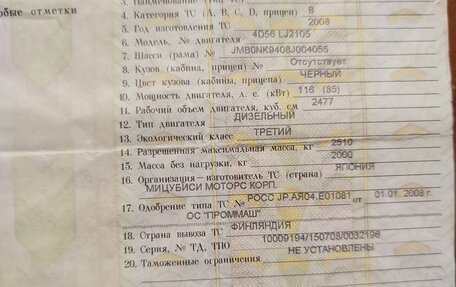 3. Наименование (тип ТС)
обые отметки
4. Категория ТС (A, B, C, D, прицеп) B
5. Год изготовления ТС 2008
6. Модель, № двигателя 4D56 LJ2105
7. Шасси (рама) № JMB0NK9408J004055
8. Кузов (кабина, прицеп) № Отсутствует
9. Цвет кузова (кабины, прицепа) ЧЕРНЫЙ
10. Мощность двигателя, л. с. (кВт) 116 (85)
11. Рабочий объем двигателя, куб. см 2477
12. Тип двигателя ДИЗЕЛЬНЫЙ
13. Экологический класс ТРЕТИЙ
14. Разрешенная максимальная масса, кг 2510
15. Масса без нагрузки, кг 2000
16. Организация—изготовитель ТС (страна) ЯПОНИЯ
МИЦУБИСИ МОТОРС КОРП.
17. Одобрение типа ТС № РОСС JP.АЯ04.Е01081 от 01.01.2008 г.
ОС "ПРОММАШ"
18. Страна вывоза ТС ФИНЛЯНДИЯ
19. Серия, № ТД, ТПО 10009194/150708/0032196
20. Таможенные ограничения НЕ УСТАНОВЛЕНЫ